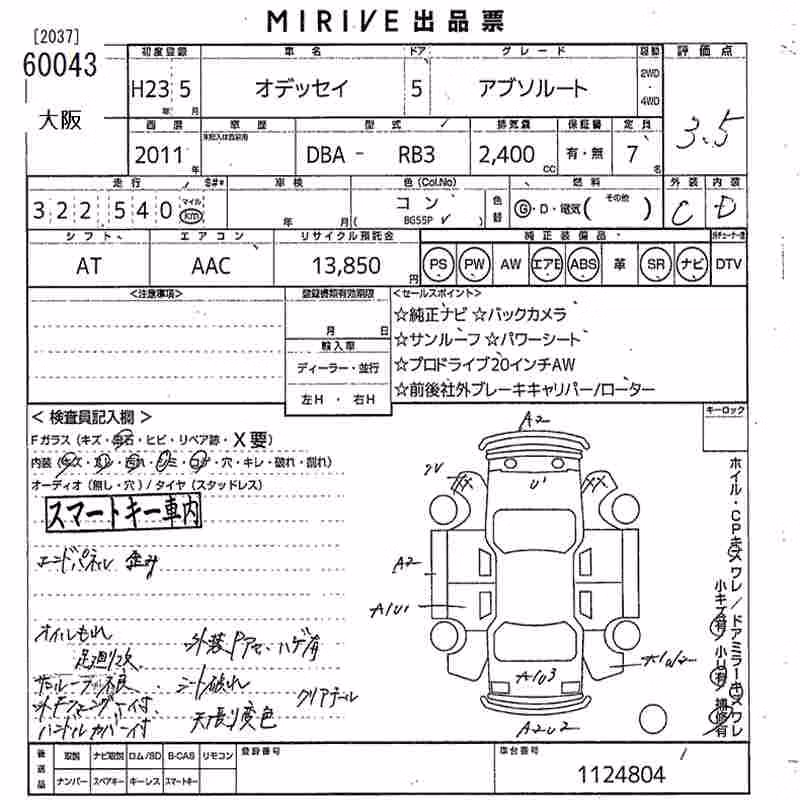 MIRIVE 出品票
[2037]
60043
大阪
初度登録 車名 ドア グレード 駆動 評価点
H23 5 オデッセイ 5 アブソルート 2WD・4WD 3.5
年 月
西暦 車歴 型式 排気量 保証書 定員
2011年 DBA - RB3 2,400 CC 有・無 7名
走行 S#* 車検 色(Col.No) 色替 燃料 外装 内装
322,540 マイル km 年 月( コン BG55P ) G・D・電気( その他 ) C D
シフト エアコン リサイクル預託金 純正装備品
AT AAC 13,850円 PS PW AW エアB ABS 革 SR ナビ DTV
<注意事項> 登録書類有効期限 <セールスポイント>
月 日
輸入車
ディーラー・並行
左H ・ 右H
☆純正ナビ ☆バックカメラ
☆サンルーフ ☆パワーシート
☆プロドライブ20インチAW
☆前後社外ブレーキキャリパー/ローター
キーロック
<検査員記入欄>
Fガラス(キズ・飛石・ヒビ・リペア跡・X要)
内装(キズ・スレ・汚れ・シミ・コゲ・穴・キレ・破れ・割れ)
オーディオ(無し・穴)/タイヤ(スタッドレス)
スマートキー車内
エンドパネル 歪み
オイルもれ
足廻り
外装 ハゲ有
サンルーフ不良
シート破れ
クリアデール
ハンドルカバー付
天張り変色
A2
2V
XX
U1
XX
A2
A1U1
A1U3
A1U2
A2U2
ホイル・CPキズワレ/ドアミラーキズワレ
小キズ有 小U有 補修有
後送品 取説 ナビ取説 ロム/SD B-CAS リモコン
ナンバー スペアキー キーレス スマートキー
登録番号
車台番号
1124804